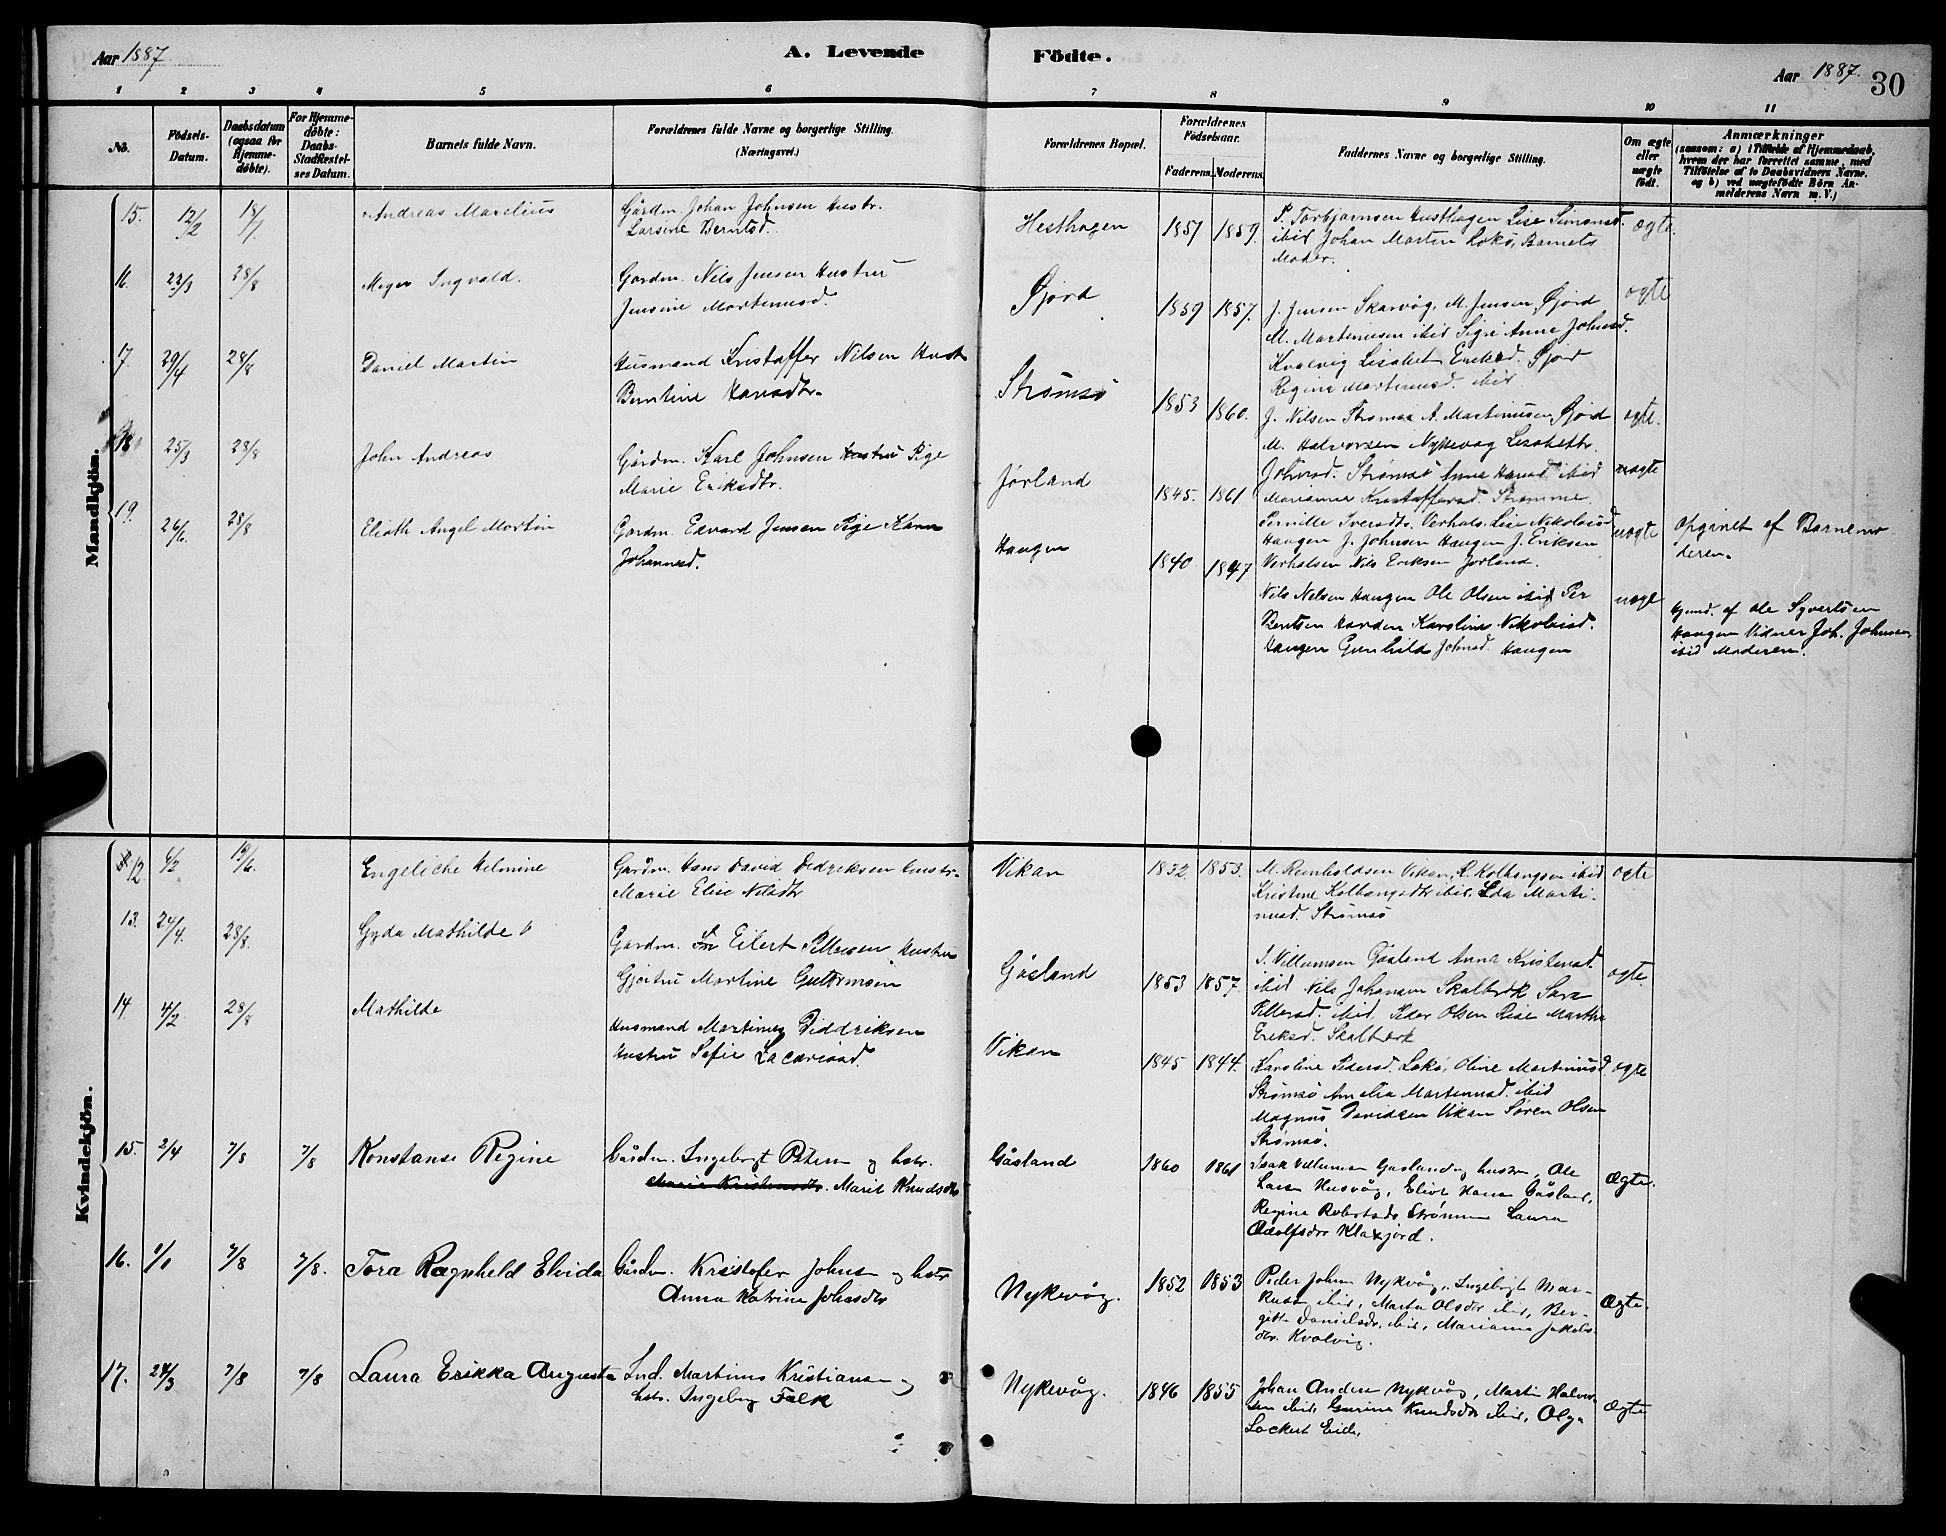 Aar 1887.
A. Levende
Födte.
Aar 1887.
30
1 2 3 4 5 6 7 8 9 10 11
No.
Födsels-
Datum.
Daabsdatum
(ogsaa for
Hjemme-
döbte).
For Hjemme-
döbte:
Daabs-
Stadfæstel-
ses Datum.
Barnets fulde Navn.
Forældrenes fulde Navne og borgerlige Stilling.
(Næringsvei.)
Forældrenes Bopæl.
Forældrenes
Födselsaar.
Faderens. Moderens.
Faddernes Navne og borgerlige Stilling.
Om ægte
eller
uægte
födt.
Anmærkninger
(saasom: a) i Tilfælde af Hjemmedaab,
hvem der har forrettet samme, med
Tilföielse af to Daabsvidners Navne,
og b) ved uægtefödte Börn An-
melderens Navn m. V.)
Mandkjön.
15. 12/2 18/7 Andreas Marelius
Gårdm. Johan Johnsen Hustr.
Larsine Berntsd.
Hesthagen 1857 1859.
P. Torbjørnsen Hesthagen Lise Simonsd.
ibid Johan Martin Lokø, Barnets
Moder.
ægte.
16. 23/3 28/8 Meyer Ingvald.
Gardm. Nils Jensen Hustru
Jensine Martinusd.
Øjord 1859 1857.
J. Jensen Skarvåg, M. Jensen Øjord
M. Martinusen ibid Sigri Anna Johnsd.
Kvalvig Lisabet Eriksd. Øjord
Regine Martinusd. ibid.
ogte
17. 29/4 28/8 Daniel Martin
Husmand Kristaffer Nilsen Hust
Berntine Hansdtr.
Strømsø 1853 1860.
J. Nilsen Strømsø A. Martinusen Øjord
M. Halvorsen Nykevåg Lisabeth
Johnsd. Strømsø Anna Hansd. ibid
Marianna Kristaffersd. Strømme
ogte.
18 25/3 28/8 John Andreas
Gårdm. Karl Johnsen Hustru Pige
Marie Eriksdtr.
Jørland 1845. 1861
Pernille Iversdtr. Verhals. Lise Nikolaisd
Haugen J. Johnsen Haugen J. Eriksen
Verhalsen Nils Eriksen Jørland.
uægte
Opgivet af Barnemo
deren.
19. 26/6. 28/8 Eliath Angel Martin
Gardm. Edvard Jensen Pige Karen
Johannesd.
Haugen 1840 1847
Nils Nelsen Haugen Ole Olsen ibid Per
Bentsen Harden Karoline Nikolaisd.
Haugen Gunhild Johnsd. Haugen
uægt
Hjemd. af Ole Syvertsen
Haugen Vidner Joh. Johnsen
ibid Moderen.
Kvindekjön.
12. 4/2 19/6. Engeliche Helmine
Gårdm. Hans David Dedriksen Hustr.
Marie Elise Nilsdtr
Vikan 1832. 1853.
M. Reinholdsen Vikan, R. Kolbangsen ibid
Kristine Kolbangsdtr ibid. Eda Marti-
nusd. Strømsø
ogte
13. 24/4. 28/8. Gyda Mathilde
Gårdm. Eilert Pettersen Hustru
Gjertru Martine Guttormsen
Gåsland 1853 1857.
I. Villumsen Gåsland Anna Kristensd.
ibid Nils Johansen Skalbrøk Sara
Pettersd. ibid. Peder Olsen Lise Martha
Eriksd. Skalbrøk
ogte.
14 4/2 28/8 Mathilde
Husmand Martinus Diddriksen
Hustru Sofie Zacariasd.
Vikan 1845 1844.
Karoline Pedersd. Loko, Oline Martinusd
Strømsø Amelia Martinusd. ibid
Magnus Davidsen Vikan Søren Olsen
Strømsø.
ogte
15. 2/4 7/8 7/8 Konstanse Regine
Gårdm. Ingebrigt Petersen og hstr.
Marie Kristensdtr. Marit Knudsdtr
Gåsland 1860 1861
Isak Villumsen Gåsland og hustru, Ole
Larsen Husvåg, Eliot Hansen Gåsland,
Regine Robertsdtr Strømme Laura
Adolfsdtr Klaxjord.
Ægte.
16. 7/8 7/8. Tora Ragnheld Elvida
Gårdm. Kristofer Johnsen og hstr
Anna Katrine Johnsdtr
Nykevåg. 1852 1853
Peder Johnsen Nykvåg, Ingebrigt Mar-
kussen ibid, Marta Olsdtr ibid, Ber-
gitte Danielsdtr. ibid, Marianne Jakobs-
dtr. Kvalvig.
Ægte.
17. 24/3 7/8 7/8 Laura Erikka Augusta
Ind. Martinus Kristiansen og
hstr. Ingeborg Falk
Nykevåg. 1846 1855
Johan Andersen Nykvåg, Martin Halvor-
sen ibid, Gurine Knudsdtr ibid, Olga
Lockert Eide.
Ægte